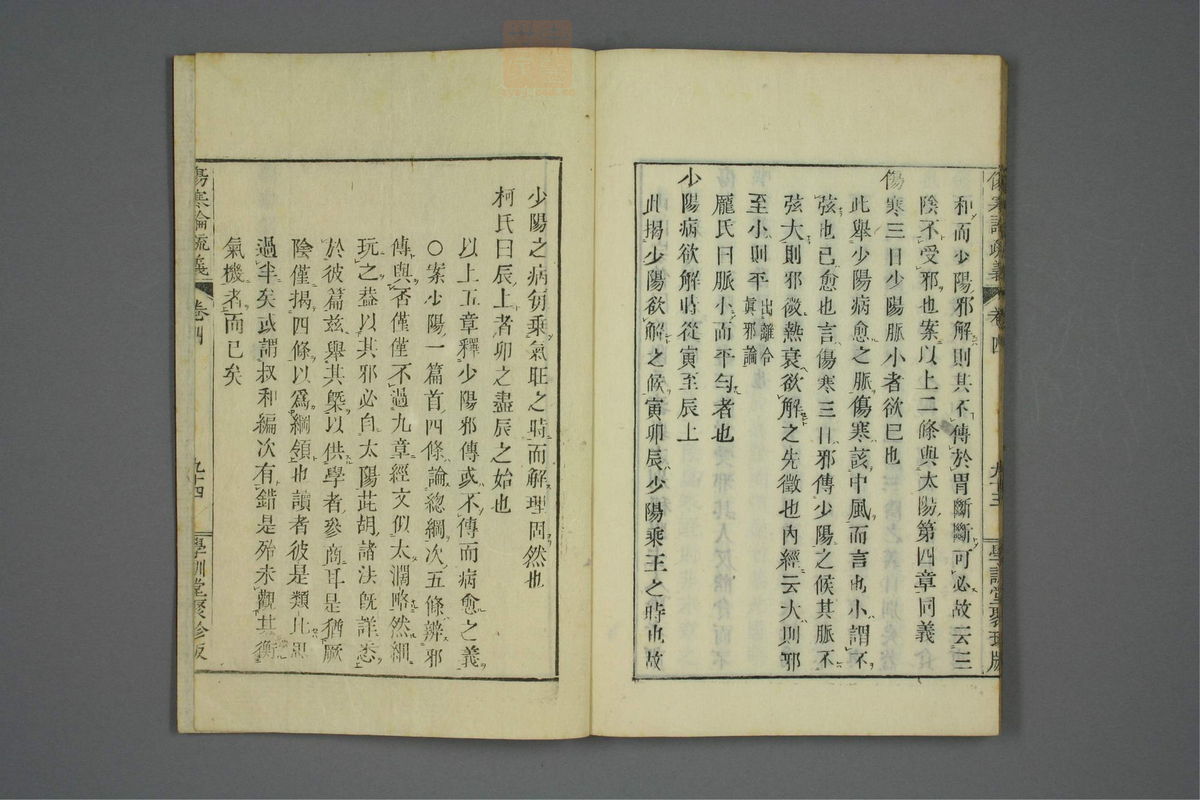 和而少陽邪解則其不傳於胃斷斷可必故云三
陰不受邪也案以上二條與太陽第四章同義
傷寒三日少陽脈小者欲已也
此舉少陽病愈之脈傷寒該中風而言也小謂不
弦也已愈也言傷寒三日邪傳少陽之候其脈不
弦大則邪微熱衰欲解之先徵也內經云大則邪
至小則平
出離合
眞邪論
龐氏曰脈小而平勻者也
少陽病欲解時從寅至辰上
此揭少陽欲解之候寅卯辰少陽乘王之時也故
傷寒論疏義
卷四
九十三
學訓堂聚珍版
少陽之病仿乘氣旺之時而解理固然也
柯氏曰辰上者卯之盡辰之始也
以上五章釋少陽邪傳或不傳而病愈之義
○案少陽一篇首四條論總綱次五條辨邪
傳與否僅僅不過九章經文似太濶略然細
玩之葢以其邪必自太陽茈胡諸法旣詳悉
於彼篇玆舉其槩以供學者參商耳是猶厥
陰僅揭四條以爲綱領也讀者彼是類比思
過半矣或謂叔和編次有錯是殆未觀其衡
氣機者而已矣
傷寒論疏義
卷四
九十四
學訓堂聚珍版